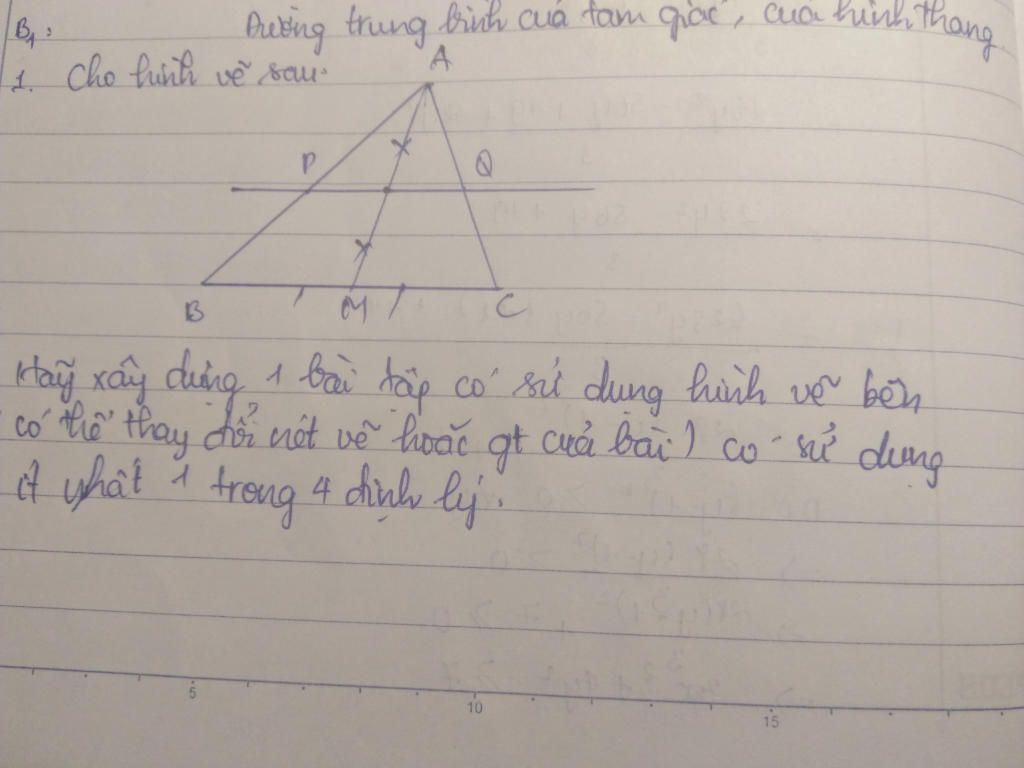 B₁: Đường trung bình của tam giác, của hình thang
1. Cho hình vẽ sau:
A
P Q
B M C
Hãy xây dựng 1 bài tập có sử dụng hình vẽ bên
có thể thay đổi nét vẽ hoặc gt của bài) có sử dụng
ít nhất 1 trong 4 định lý.
5
10
15